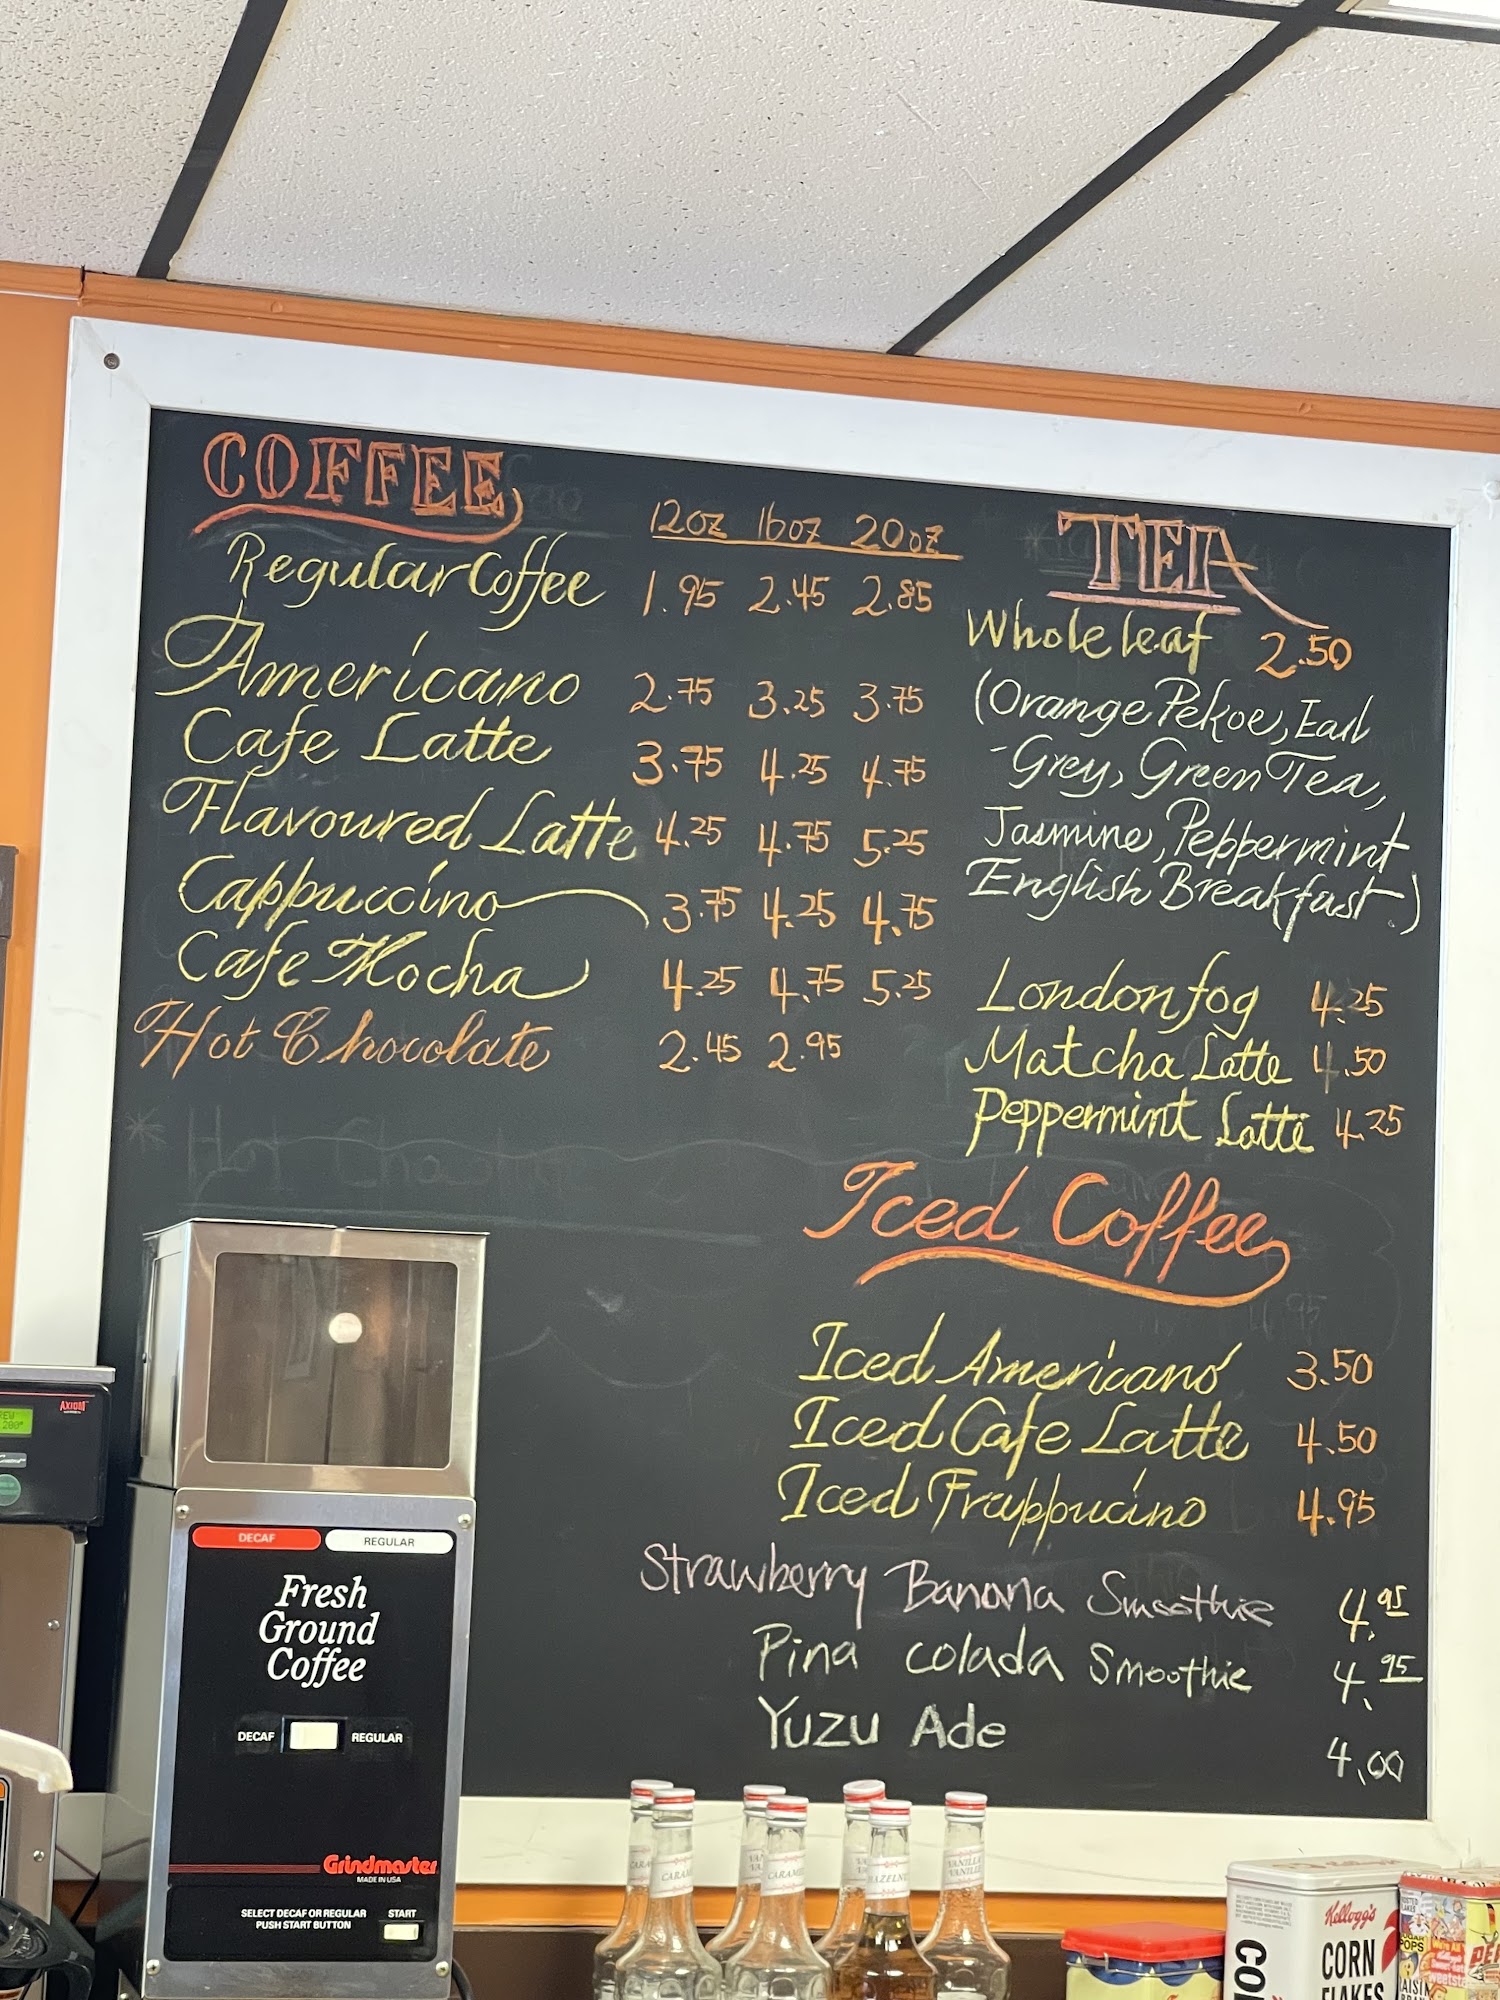 COFFEE
12oz 16oz 20oz
Regular Coffee 1.95 2.45 2.85
Americano 2.75 3.25 3.75
Cafe Latte 3.75 4.25 4.75
Flavoured Latte 4.25 4.75 5.25
Cappuccino 3.75 4.25 4.75
Cafe Mocha 4.25 4.75 5.25
Hot Chocolate 2.45 2.95
TEA
Whole leaf 2.50
(Orange Pekoe, Earl
-Grey, Green Tea,
Jasmine, Peppermint
English Breakfast.)
London fog 4.25
Matcha Latte 4.50
Peppermint Latte 4.25
Iced Coffee
Iced Americano 3.50
Iced Cafe Latte 4.50
Iced Frappucino 4.95
Strawberry Banana Smoothie 4.95
Pina colada Smoothie 4.95
Yuzu Ade 4.00
AXIOM
200°
DECAF REGULAR
Fresh
Ground
Coffee
DECAF REGULAR
Grindmaster
MADE IN USA
SELECT DECAF OR REGULAR
PUSH START BUTTON
START
CARAMEL
VANILLA
VANILLE
Kellogg's
CORN
FLAKES
POPS